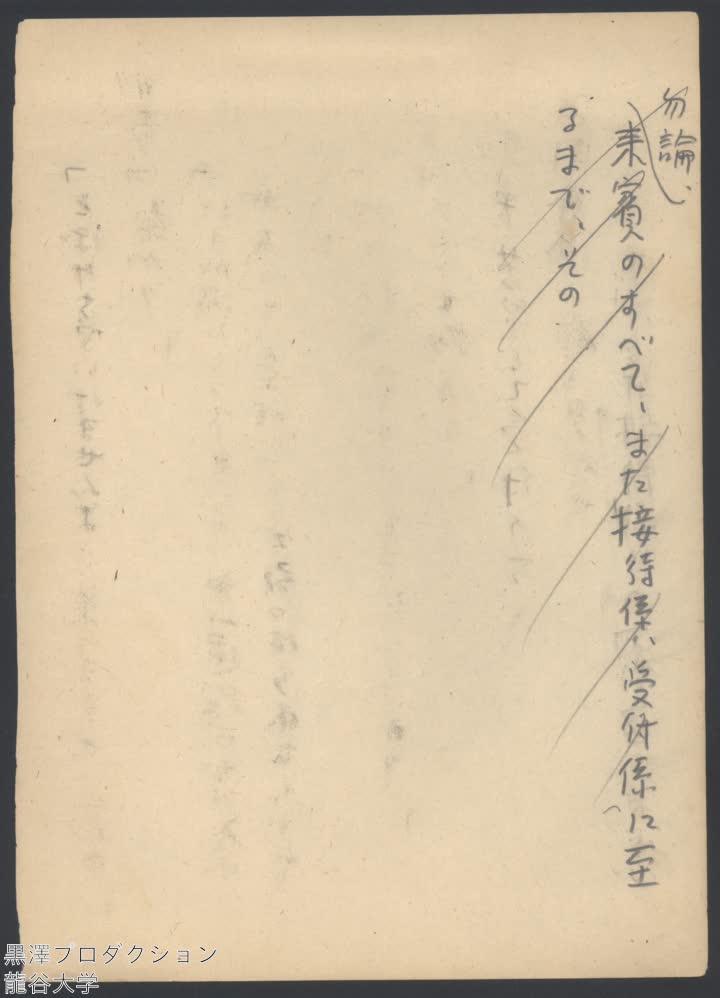 勿論、
来賓のすべて、また接待係、受付係に至
るまで、その
黒澤プロダクション
龍谷大学